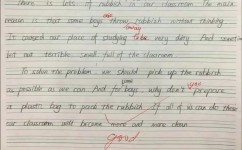 There is lots of rubbish in our classroom. The main
reason is that some boys throw rubbish without thinking
It caused our place of studying to be very dirty. And sometimes
but out terrible smell full of the classroom.
To solve the problem we should pick up the rubbish
as possible as we can. And for boys, why don't prepare
a plastic bag to pack the rubbish. If all of us can do these
our classroom will become more and more clean.
good